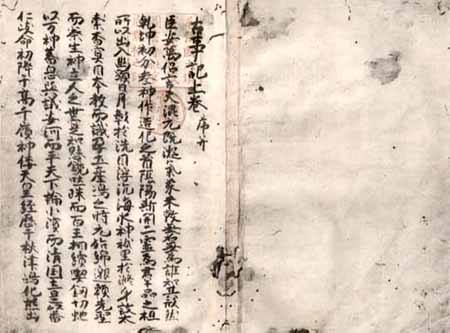 古事記上卷 序并
臣安萬侶言夫混元既凝氣象未效無名無爲誰知其形然
乾坤初分參神作造化之首陰陽斯開二靈爲群品之祖
所以出入幽顯日月彰於洗目浮沉海水神祇呈於滌身故太
素杳冥因本教而識孕土産嶋之時元始綿邈頼先聖
而察生神立人之世寔知懸鏡吐珠而百王相續喫釼切虵
以万神蕃息與議安河而平天下論小濱而清國土是以番
仁岐命初降于高千嶺神倭天皇經歷于秋津嶋化熊出